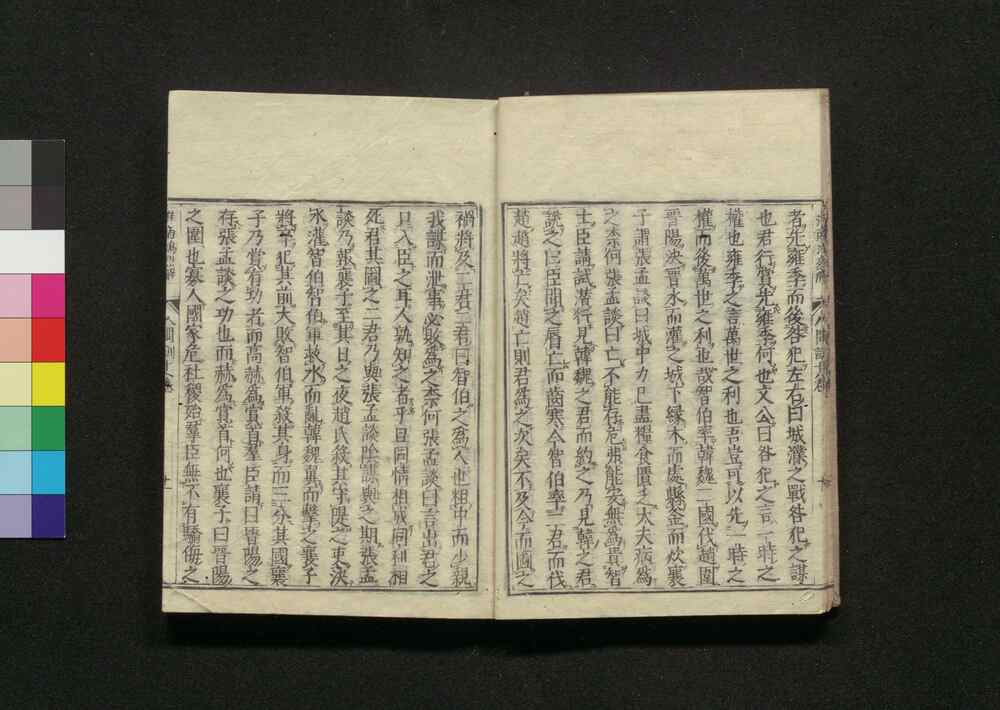 者先雍季而後咎犯左右曰城濮之戰咎犯之謀
也君行賞先雍季何也文公曰咎犯之言一時之
權也雍季之言萬世之利也吾豈可以先一時之
權而後萬世之利也哉智伯率韓魏二國伐趙圍
晉陽決晉水而灌之城下緣木而處縣釜而炊襄
子謂張孟談曰城中力已盡糧食匱乏大夫病爲
之柰何張孟談曰亡不能存危弗能安無爲貴智
士臣請試潛行見韓魏之君而約之乃見韓之君
說之曰臣聞之脣亡而齒寒今智伯率二君而伐
趙趙將亡矣趙亡則君爲之次矣不及今而圖之
禍將及二君二君曰智伯之爲人也粗中而少親
我謀而泄事必敗爲之柰何張孟談曰言出君之
口入臣之耳人孰知之者乎且同情相成同利相
死君其圖之二君乃與張孟談陰謀與之期張孟
談乃報襄子至其日之夜趙氏殺其守隄之吏決
水灌智伯智伯軍救水而亂韓魏翼而擊之襄子
將卒犯其前大敗智伯軍殺其身而三分其國襄
子乃賞有功者而高赫爲賞首羣臣請曰晉陽之
存張孟談之功也而赫爲賞首何也襄子曰晉陽
之圍也寡人國家危社稷殆羣臣無不有驕侮之